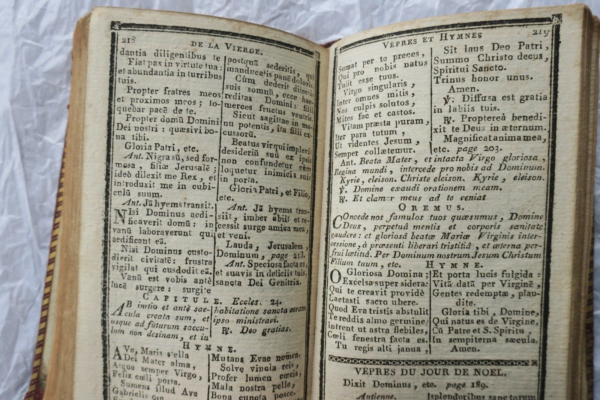 218 DE LA VIERGE.
dantia diligentibus te
Fiat pax in virtute tua:
et abundantia in turribus
tuis.
Propter fratres meos
et proximos meos; lo-
quebar pacē de te.
Propter domū Domini
Dei nostri : quæsivi bo-
na tibi.
Gloria Patri, etc.
Ant. Nigra sū, sed for-
mosa, filiæ Jerusalē;
ideò dilexit me Rex, et
introduxit me in cubi-
culū suum.
Ant. Jā hyems transiit.
NIsi Dominus ædi-
ficaverit domū : in
vanū laboraverunt qui
ædificant eā.
Nisi Dominus custo-
dierit civitatē; frustra
vigilat qui custodit eā.
Vanū est vobis antè
lucē surgere : surgite
postquā sederitis, qui
manducatis panē doloris.
Cùm dederit dilectis
suis somnū, ecce hæ-
reditas Domini : filii
merces fructus ventris.
Sicut sagittæ in ma-
nu potentis, ita filii ex-
cussorū.
Beatus vir qui implevit
desideriū suū ex ipsis
non confundetur cùm
loquetur inimicis suis
in porta.
Gloria Patri, et Filio,
etc.
Ant. Jā hyems trans-
iit, imber abiit et re-
cessit surge amica mea,
et veni.
Lauda, Jerusalem,
Dominum, page 213.
Ant. Speciosa facta es,
et suavis in deliciis tuis,
sancta Dei Genitrix.
CAPITULE. Eccles. 24.
AB initio et ante sæ-
cula creata sum, et
usque ad futurum sæcu-
lum non desinam, et in
habitatione sancta coram
ipso ministravi.
℟. Deo gratias.
HYMNE.
AVe, Maris stella
Dei Mater alma,
Atque semper Virgo,
Felix cœli porta.
Sumens illud Ave
Gabrielis ore
Mutans Evæ nomen.
Solve vincla reis,
Profer lumen cœcis,
Mala nostra pelle,
Bona cuncta posce.
VEPRES ET HYMNES 219
Sumat per te preces,
Qui pro nobis natus
Tulit esse tuus.
Virgo singularis,
Inter omnes mitis,
Nos culpis solutos,
Mites fac et castos.
Vitam præsta puram,
Iter para tutum,
Ut videntes Jesum,
Semper collætemur.
Sit laus Deo Patri,
Summo Christo decus,
Spiritui Sancto.
Trinus honor unus.
Amen.
℣. Diffusa est gratia
in labiis tuis.
℟. Propterea bened-
ixit te Deus in æternum.
Magnificat anima mea,
etc. page 203.
Ant. Beata Mater, et intacta Virgo gloriosa,
Regina mundi, intercede pro nobis ad Dominum.
Kyrie, eleison. Christe eleison. Kyrie, eleison.
℣. Domine exaudi orationem meam.
℟. Et clamor meus ad te veniat
OREMUS.
COncede nos famulos tuos quæsumus, Domine
Deus, perpetuâ mentis et corporis sanitate
gaudere: et gloriosâ beatæ Mariæ Virginis interces-
sione, à præsenti liberari tristitiâ, et æterna per-
frui lætitiâ. Per Dominum nostrum Jesum Christum
Filium tuum, etc.
HYMNE.
O Gloriosa Domina
Excelsa super sidera:
Qui te creavit providè
Lactasti sacro ubere.
Quod Eva tristis abstulit
Te reddis almo germine:
Intrent ut astra flebiles,
Cœli fenestra facta es.
Tu regis alti janua,
Et porta lucis fulgida:
Vitā datā per Virginē,
Gentes redemptæ, plau-
dite.
Gloria tibi, Domine,
Qui natus es de Virgine,
Cū Patre et S. Spiritu,
In sempiterna sæcula.
Amen.
VEPRES DU JOUR DE NOEL.
Dixit Dominus, etc. page 189.
Antienne.
splendoribus sanctorum